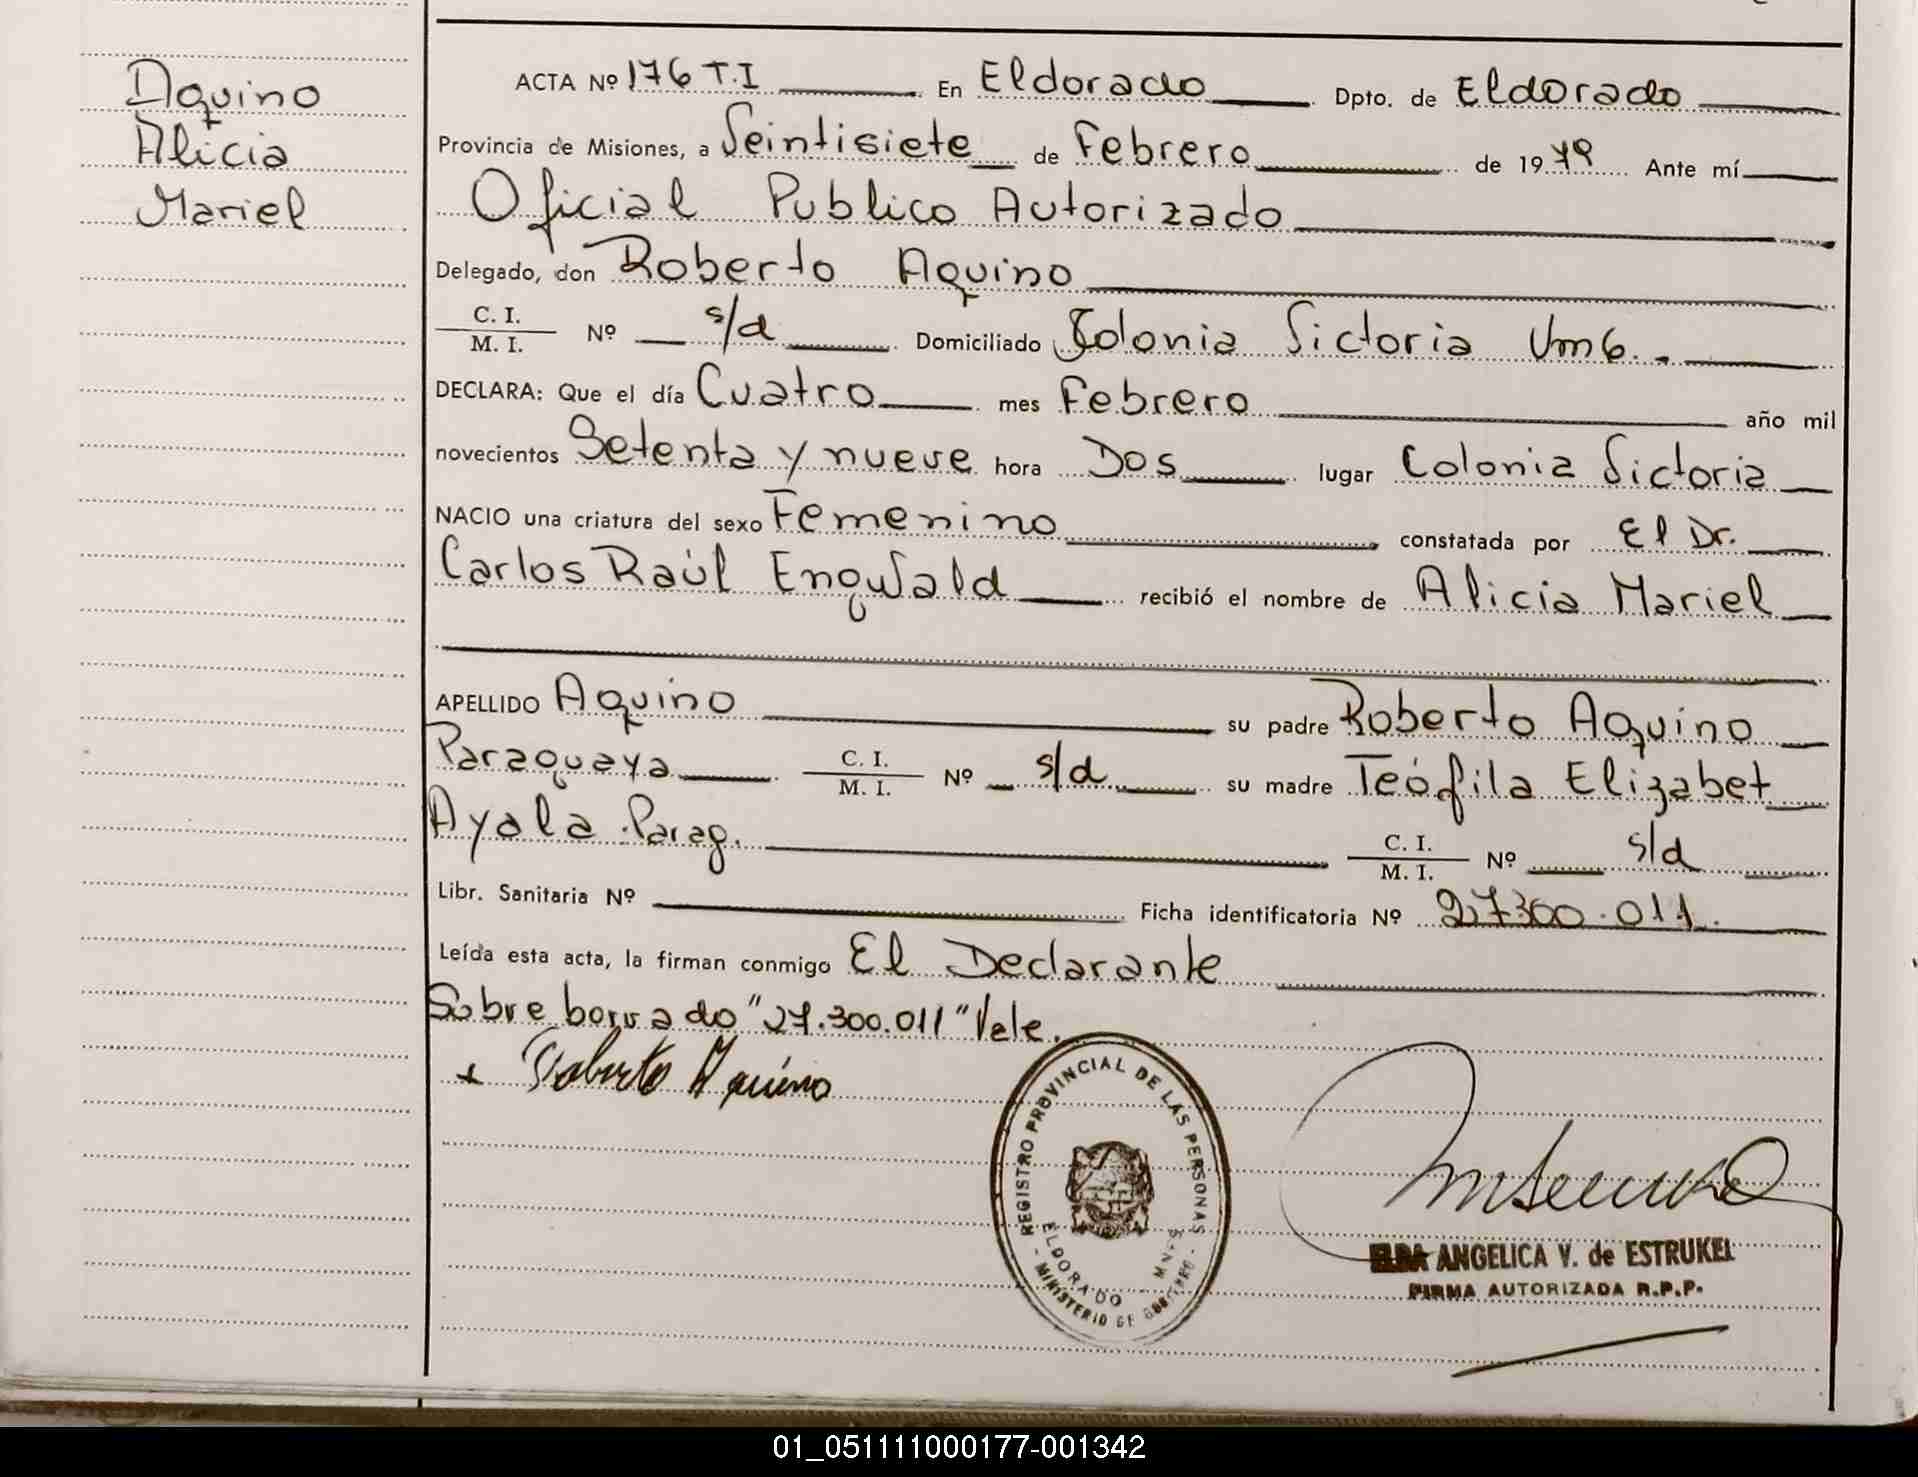 Aquino
Alicia
Mariel
ACTA Nº 176 T.I En Eldorado Dpto. de Eldorado
Provincia de Misiones, a Veintisiete de Febrero de 1979 Ante mí
Oficial Publico Autorizado
Delegado, don Roberto Aquino
C. I.
M. I. Nº s/d Domiciliado Colonia Victoria Km6.
DECLARA: Que el día Cuatro mes Febrero año mil
novecientos Setenta y nueve hora Dos lugar Colonia Victoria
NACIO una criatura del sexo Femenino constatada por El Dr.
Carlos Raúl Engwald recibió el nombre de Alicia Mariel
APELLIDO Aquino su padre Roberto Aquino
Paraguaya C. I. M. I. Nº s/d su madre Teófila Elizabet
Ayala Parag. C. I. M. I. Nº s/d
Libr. Sanitaria Nº Ficha identificatoria Nº 27300.011.
Leída esta acta, la firman conmigo El Declarante
Sobre borrado "27.300.011" Vele.
Roberto Aquino
REGISTRO PROVINCIAL DE LAS PERSONAS
ELDORADO - MNES
- MINISTERIO DE GOBIERNO -
ELBA ANGELICA V. de ESTRUKEL
FIRMA AUTORIZADA R.P.P.
01_051111000177-001342